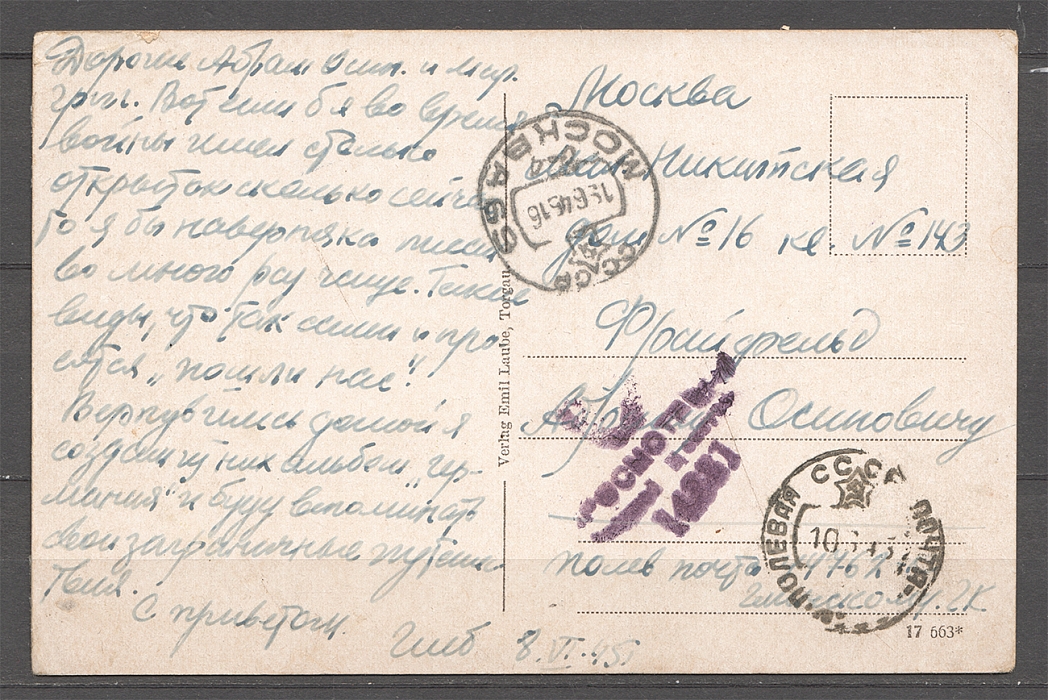 Дорогие Абрам Осип. и Мар.
Григ. Вот если б я во время
войны имел столько
открыток сколько сейчас
то я бы наверняка писал
во много раз чаще. Такие
виды, что так сами и про
сятся „пошли нас"!
Вернувшись домой я
создам из них альбом „Гер-
мания" и буду вспоминать
свои заграничные путеше-
твия.
С приветом
8.VI.45
Verlag Emil Laube, Torgau
Москва
Никитская
дом №16 кв. №143
Фрайфельд
Абраму Осиповичу
полев почта
Глинскому. Г.К
17 663*
МОСКВА 69
СССР
ПРОСМОТРЕНО
14281
СССР
ПОЛЕВАЯ ПОЧТА